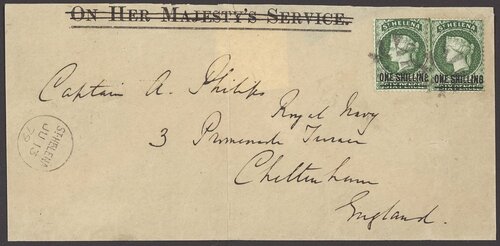 On Her Majesty's Service.
ST HELENA ST HELENA
ONE SHILLING ONE SHILLING
Captain A. Philips
Royal Navy
3 Promenade Terrace
Cheltenham
England.
ST HELENA
JU 13
79